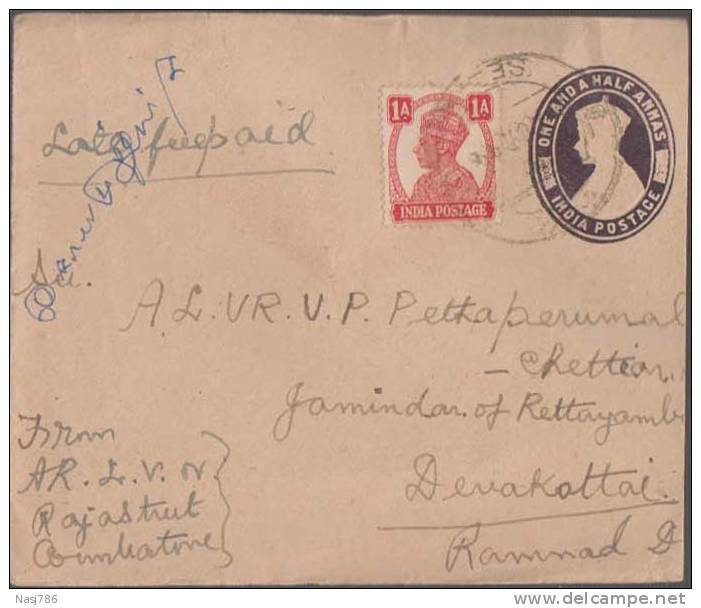 Late fee paid
1A 1A
INDIA POSTAGE
ONE AND A HALF ANNAS
INDIA POSTAGE
A. L. VR. V. P. Pethaperumal
- Chettiar.
Jamindar. of Rettayamb
Devakottai.
Ramnad D
From
AR. L. V. N.
Rajastreet
Coimbatore
Nasj786
delcampe.net